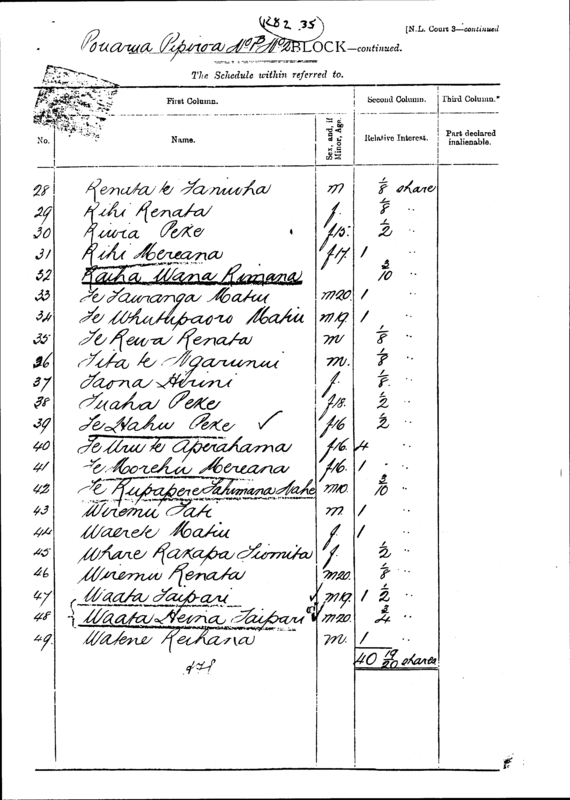 1282 35
[N.L. Court 3—continued
BLOCK—continued.
The Schedule within referred to.
First Column. Second Column. Third Column.*
No. Name. Sex, and, if Minor, Age. Relative Interest. Part declared inalienable.
28 Renata te Taniwha m 1/8 share
29 Rihi Renata f. 1/8 "
30 Riwia Peke f15. 1/2 "
31 Rihi Mereana f17. 1
32 Raiha Wana Rimana 3/10
33 Te Tauranga Matiu m20 1 "
34 Te Whutupaoro Matiu m19 1 "
35 Te Rewa Renata m 1/8 "
36 Tita te Ngarunui m. 1/8 "
37 Taona Hirini f. 1/8 "
38 Tuaha Peke f18. 1/2 "
39 Te Hahu Peke ✓ f16 1/2 "
40 Te Uru te Aperahama f16. 4 "
41 Te Morehu Mereana f16. 1 "
42 Te m10. 3/10 "
43 Wiremu Tati m 1 "
44 Waerete Matiu f. 1 "
45 Whare Rakapa Tiomita f. 1/2 "
46 Wiremu Renata m20. 1/8 "
47 Waata Taipari ✓ m19. 1 1/2 "
48 Waata Heina Taipari m20. 3/4 "
49. Watene Reihana m. 1 "
40 19/20 shares